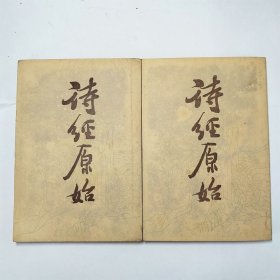 诗经原始
诗经原始